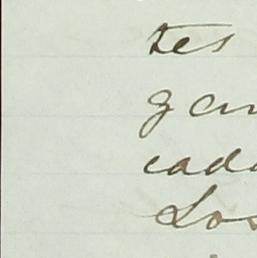 tes
gan
cada
Los